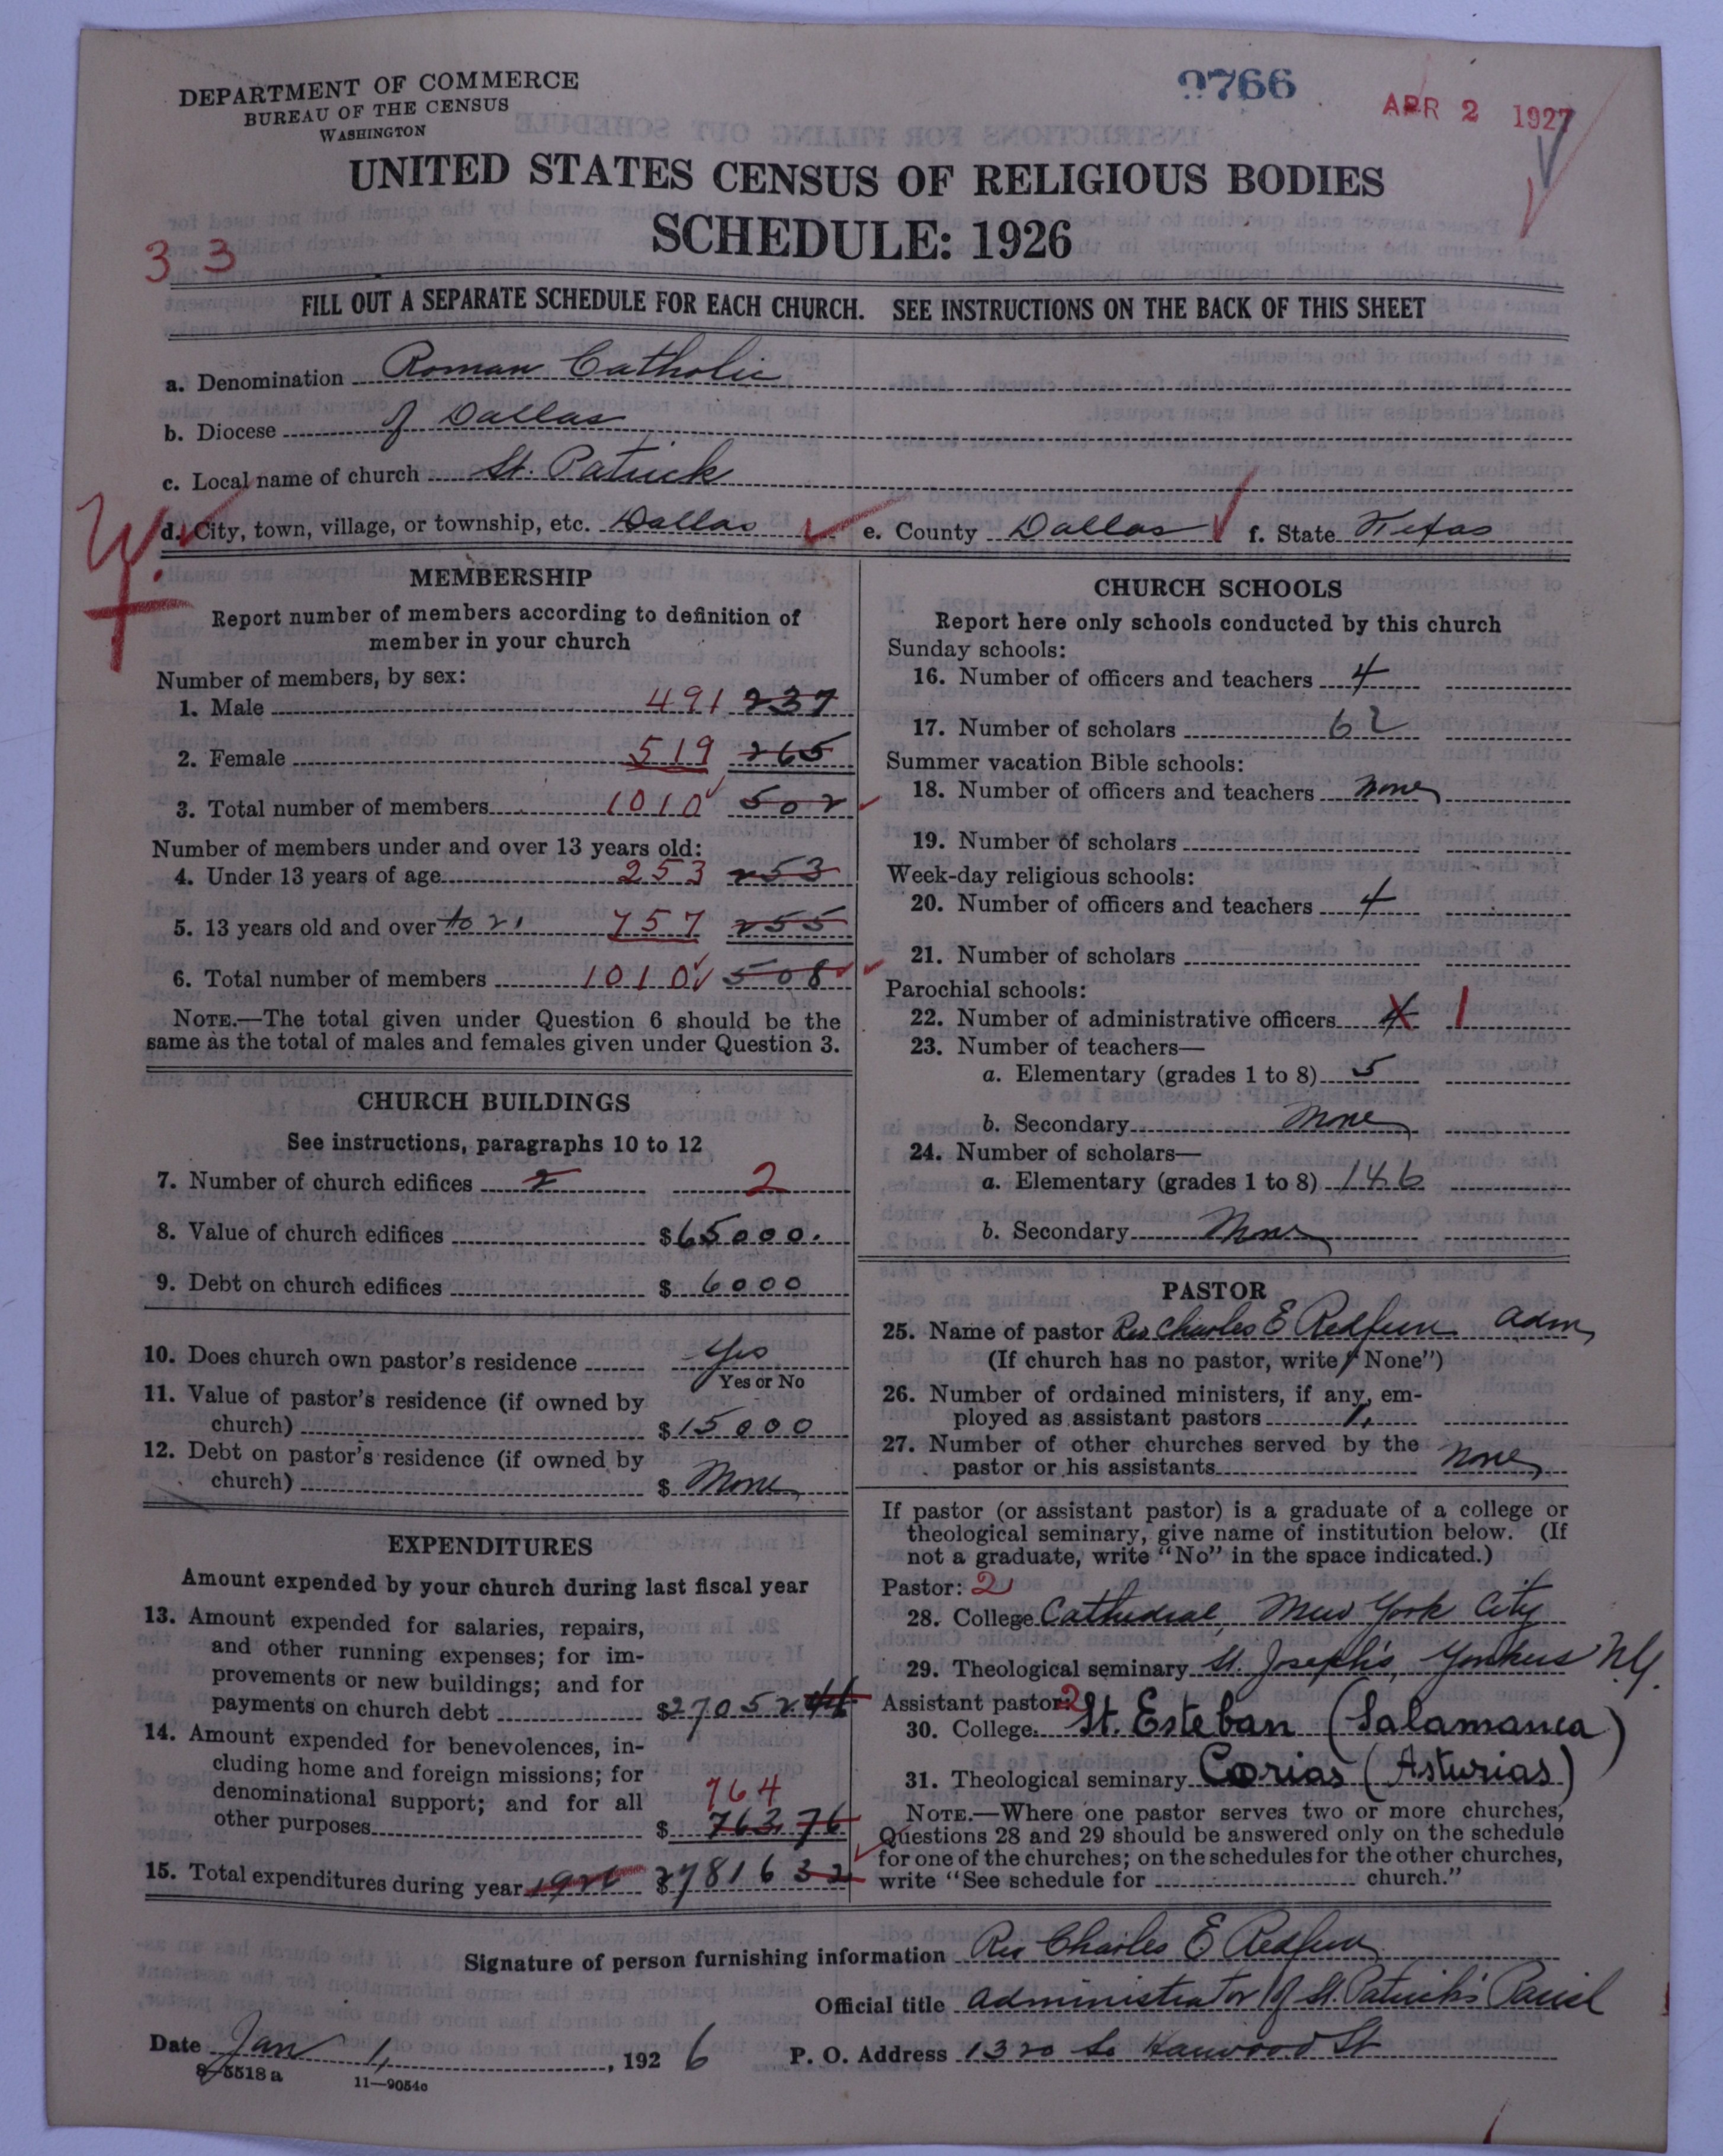 DEPARTMENT OF COMMERCE
BUREAU OF THE CENSUS
WASHINGTON
2766
APR 2 1927
UNITED STATES CENSUS OF RELIGIOUS BODIES
SCHEDULE: 1926
3 3
FILL OUT A SEPARATE SCHEDULE FOR EACH CHURCH. SEE INSTRUCTIONS ON THE BACK OF THIS SHEET
a. Denomination Roman Catholic
b. Diocese of Dallas
c. Local name of church St. Patrick
d. City, town, village, or township, etc. Dallas e. County Dallas f. State Texas
MEMBERSHIP
Report number of members according to definition of
member in your church
Number of members, by sex:
1. Male 491 237
2. Female 519 265
3. Total number of members 1010 502
Number of members under and over 13 years old:
4. Under 13 years of age 253 253
5. 13 years old and over to 21 757 255
6. Total number of members 1010 508
NOTE.—The total given under Question 6 should be the
same as the total of males and females given under Question 3.
CHURCH BUILDINGS
See instructions, paragraphs 10 to 12
7. Number of church edifices 2 2
8. Value of church edifices $65000.
9. Debt on church edifices $ 6000
10. Does church own pastor's residence Yes
Yes or No
11. Value of pastor's residence (if owned by
church) $15000
12. Debt on pastor's residence (if owned by
church) $ None
EXPENDITURES
Amount expended by your church during last fiscal year
13. Amount expended for salaries, repairs,
and other running expenses; for im-
provements or new buildings; and for
payments on church debt $27052
14. Amount expended for benevolences, in-
cluding home and foreign missions; for
denominational support; and for all
764
other purposes $ 763.76
15. Total expenditures during year 1926 $27816 32
CHURCH SCHOOLS
Report here only schools conducted by this church
Sunday schools:
16. Number of officers and teachers 4
17. Number of scholars 62
Summer vacation Bible schools:
18. Number of officers and teachers None
19. Number of scholars
Week-day religious schools:
20. Number of officers and teachers 4
21. Number of scholars
Parochial schools:
22. Number of administrative officers 4 1
23. Number of teachers—
a. Elementary (grades 1 to 8) 5
b. Secondary None
24. Number of scholars—
a. Elementary (grades 1 to 8) 146
b. Secondary None
PASTOR
25. Name of pastor Rev Charles E Redfern adm
(If church has no pastor, write "None")
26. Number of ordained ministers, if any, em-
ployed as assistant pastors 1.
27. Number of other churches served by the
pastor or his assistants None
If pastor (or assistant pastor) is a graduate of a college or
theological seminary, give name of institution below. (If
not a graduate, write "No" in the space indicated.)
Pastor: 2
28. College Cathedral, New York City
29. Theological seminary St. Joseph's, Yonkers N.Y.
Assistant pastor: 2
30. College St. Esteban (Salamanca)
31. Theological seminary Corias (Asturias)
NOTE.—Where one pastor serves two or more churches,
Questions 28 and 29 should be answered only on the schedule
for one of the churches; on the schedules for the other churches,
write "See schedule for church."
Signature of person furnishing information Rev Charles E Redfern
Official title administrator of St. Patrick's Parish
Date Jan 1, 1926 P. O. Address 1320 So Harwood St
8-5518a 11—9054c